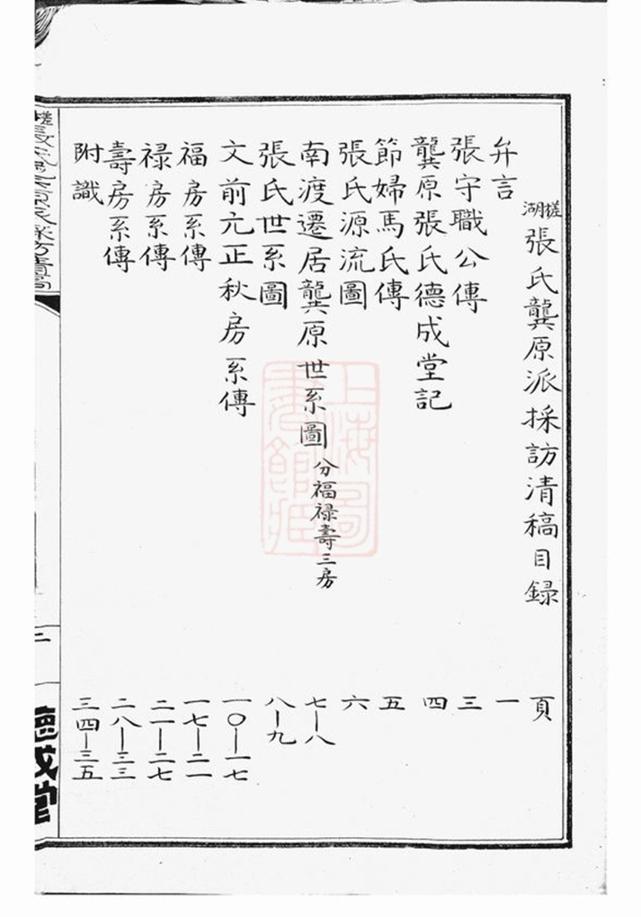 槎湖張氏龔原派採訪清稿目録 頁
弁言 一
張守職公傳 三
龔原張氏德成堂記 四
節婦馬氏傳 五
張氏源流圖 六
南渡遷居龔原世系圖 分福禄壽三房 七—八
張氏世系圖 八—九
文前亢正秋房系傳 一〇—一七
福房系傳 一七—二一
禄房系傳 二一—二七
壽房系傳 二八—三三
附識 三四—三五
二
德成堂
上海圖書館藏